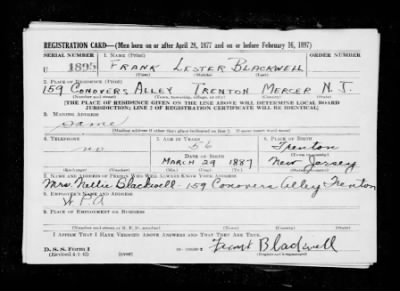 REGISTRATION CARD—(Men born on or after April 28, 1877 and on or before February 16, 1897)
SERIAL NUMBER 1. NAME (Print) ORDER NUMBER
U 1895 FRANK LESTER BLACKWELL
(First) (Middle) (Last)
2. PLACE OF RESIDENCE (Print)
159 CONOVERS ALLEY TRENTON MERCER N. J.
(Number and street) (Town, township, village, or city) (County) (State)
[THE PLACE OF RESIDENCE GIVEN ON THE LINE ABOVE WILL DETERMINE LOCAL BOARD
JURISDICTION; LINE 2 OF REGISTRATION CERTIFICATE WILL BE IDENTICAL]
3. MAILING ADDRESS
Same
[Mailing address if other than place indicated on line 2. If same insert word same]
4. TELEPHONE 5. AGE IN YEARS 6. PLACE OF BIRTH
no 56 Trenton
DATE OF BIRTH (Town or county)
MARCH 29 1887 New Jersey
(Mo.) (Day) (Yr.) (State or country)
7. NAME AND ADDRESS OF PERSON WHO WILL ALWAYS KNOW YOUR ADDRESS
Mrs. Nellie Blackwell - 159 Conovers Alley Trenton
8. EMPLOYER'S NAME AND ADDRESS
W P A
9. PLACE OF EMPLOYMENT OR BUSINESS
(Number and street or R. F. D. number) (Town) (County) (State)
I AFFIRM THAT I HAVE VERIFIED ABOVE ANSWERS AND THAT THEY ARE TRUE.
D. S. S. Form 1 Frank Blackwell
(Revised 4-1-42) (over)